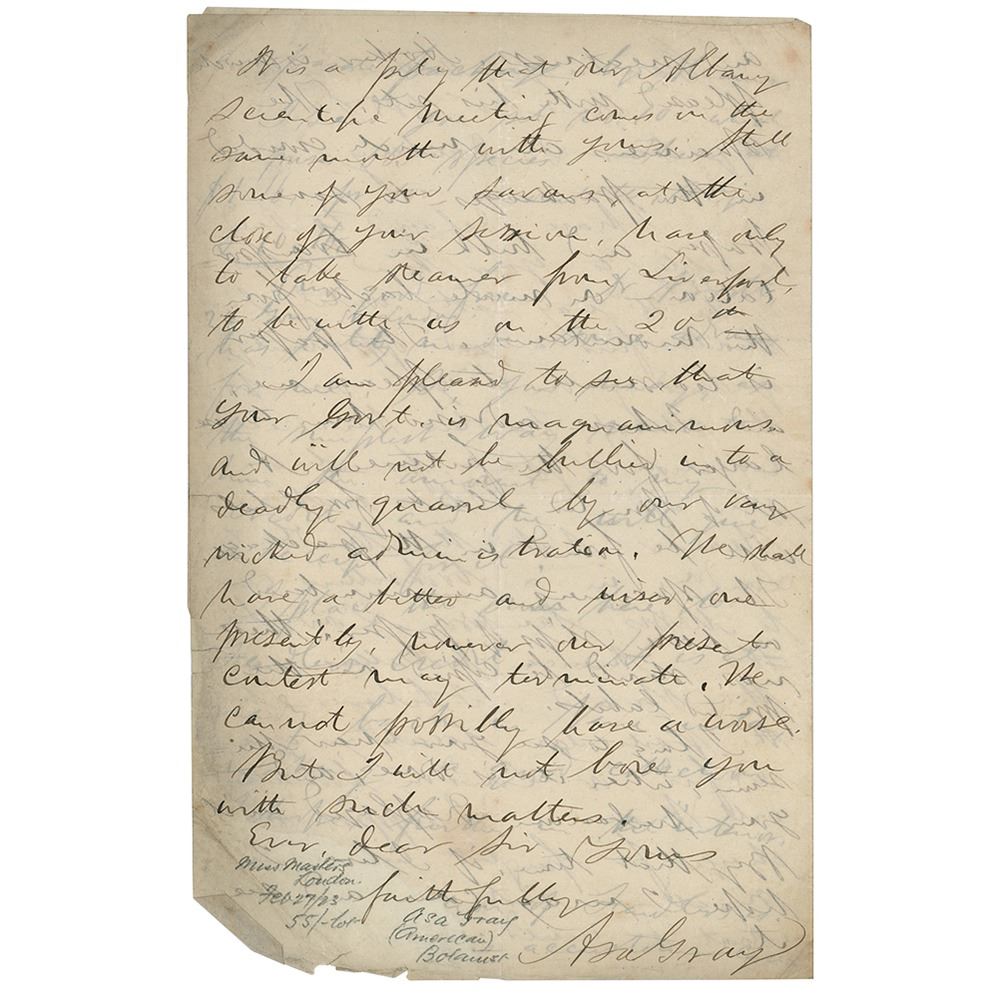 It is a pity that our Albany
scientific meeting comes on the
same month with yours. Still
some of your savans, at the
close of your session, have only
to take steamer from Liverpool,
to be with us on the 20th
I am pleased to see that
your Govt. is magnanimous
and will not be bullied into a
deadly quarrel by our very
wicked administration. We shall
have a better and wiser one
presently, however our present
contest may terminate. We
cannot possibly have a worse.
But I will not bore you
with such matters.
Ever, dear Sir Yours
faithfully
Asa Gray
Miss Masters
London.
Feb 27/23
55/- lot
Asa Gray
(American)
Botanist